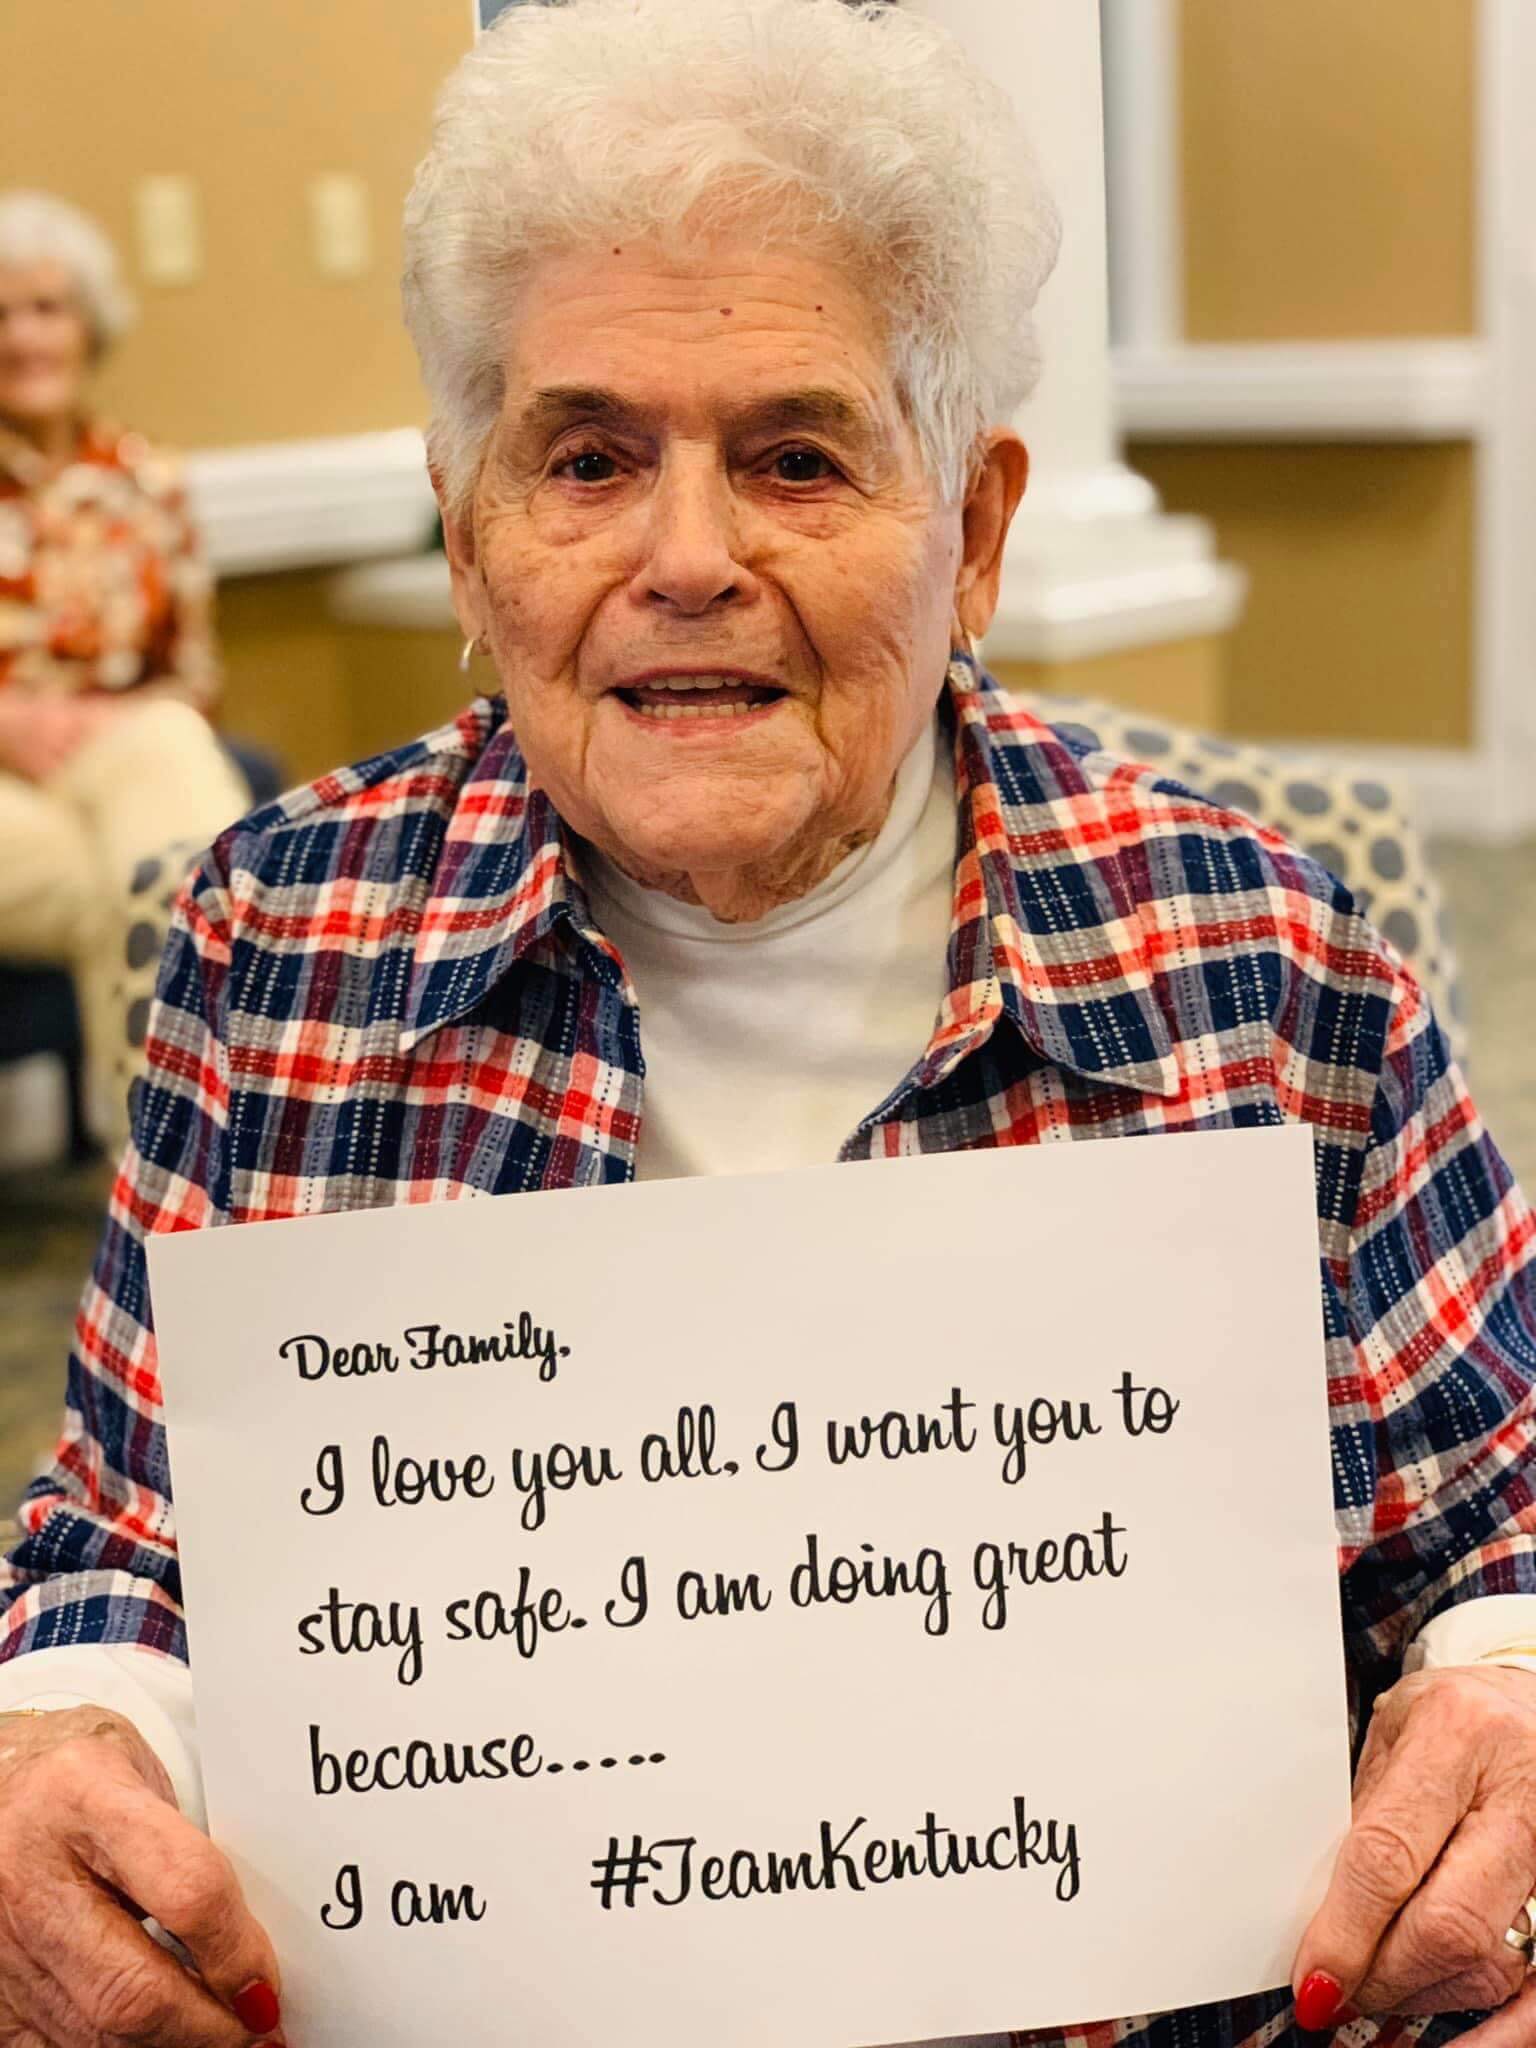 Dear Family,
I love you all, I want you to
stay safe. I am doing great
because.....
I am #TeamKentucky